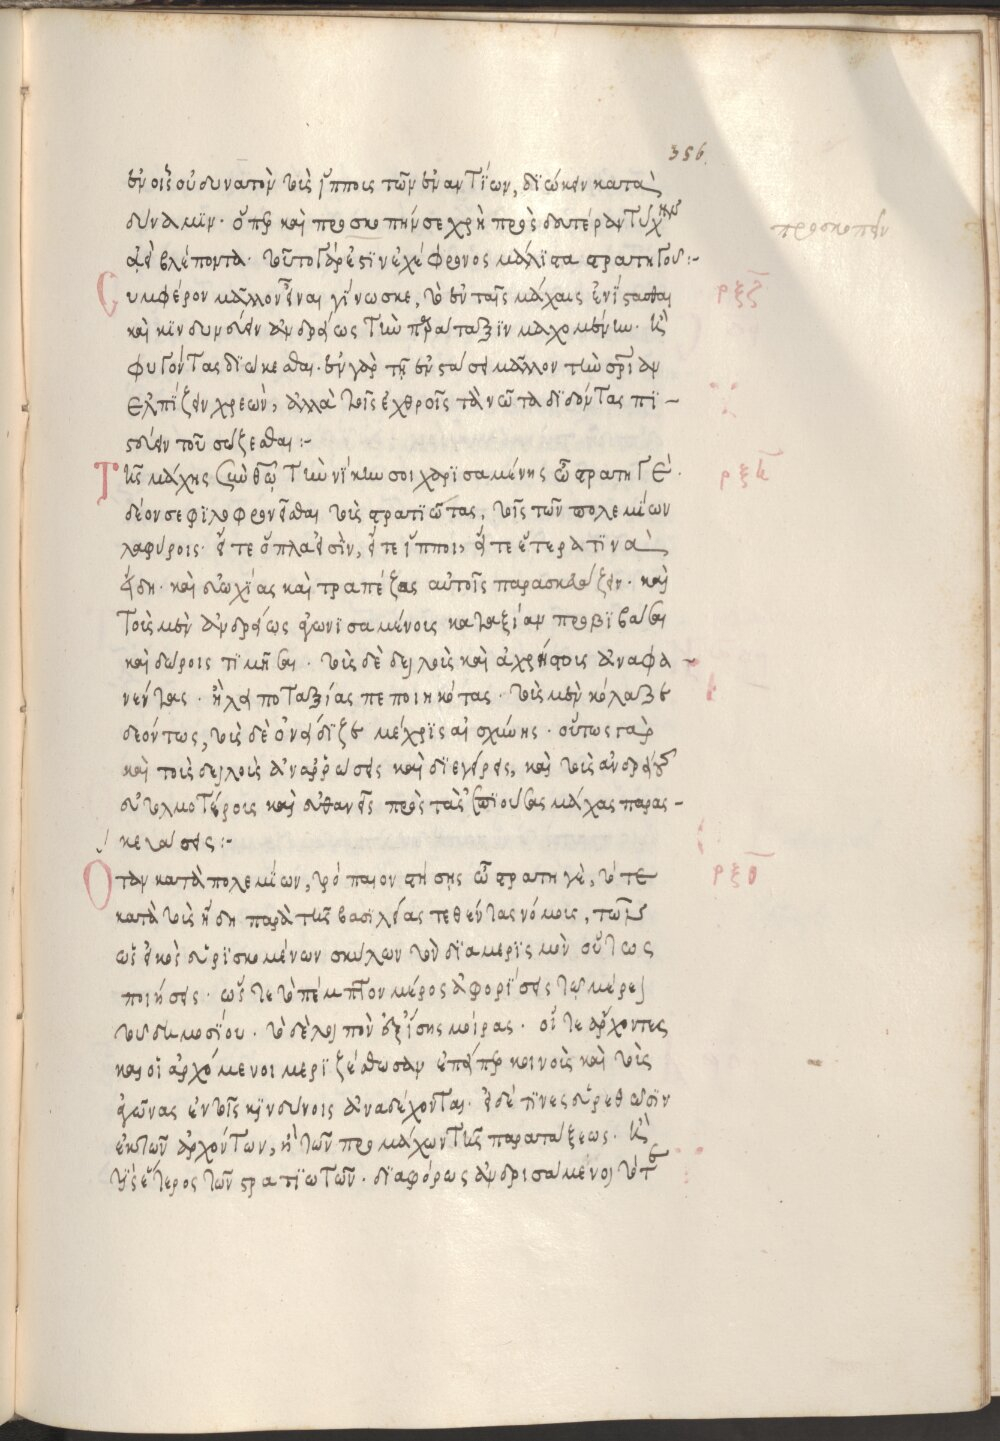 356
ἐν οἷς οὐ δυνατὸν τοῖς ἵπποις τῶν ἐναντίων, διώκειν κατὰ
δύναμιν· ὅπερ καὶ προσκοπεῖν σε χρὴ πρὸς δευτέραν τύχην
ἀεὶ βλέποντα· τοῦτο γάρ ἐστιν ἐχέφρονος μάλιστα στρατηγοῦ:-
προσκοπεῖν
Συμφέρον μᾶλλον εἶναι γίνωσκε, τὸ ἐν ταῖς μάχαις ἐνίστασθαι
ρξζ
καὶ κινδυνεύειν ἀνδρείως τὴν παράταξιν μαχομένην· ἢ
φυγόντας διώκεσθαι· ἐν γὰρ τῇ ἐνστάσει μᾶλλον τὴν σωτηρίαν
ἐλπίζειν χρεὼν, ἀλλὰ τοῖς ἐχθροῖς τὰ νῶτα διδόντας πι-
στεύειν τοῦ σώζεσθαι:-
Τῆς μάχης σὺν θεῷ τὴν νίκην σοι χαρισαμένης ὦ στρατηγέ·
ρξη
δέον σε φιλοφρονεῖσθαι τοὺς στρατιώτας, τοῖς τῶν πολεμίων
λαφύροις· εἴτε ὅπλα εἰσὶν, εἴτε ἵπποι, εἴτε ἕτερα τινὰ
εἴδη· καὶ εὐωχίας καὶ τραπέζας αὐτοῖς παρασκευάζειν· καὶ
τοὺς μὲν ἀνδρείως ἀγωνισαμένους κατ' ἀξίαν προβιβάσαι
καὶ δώροις τιμῆσαι· τοὺς δὲ δειλοὺς καὶ ἀχρήστους ἀναφα-
νέντας· ἢ λειποταξίας πεποιηκότας· τοὺς μὲν κόλαζε
δεόντως, τοὺς δὲ ὀνείδιζε μέχρις αἰσχύνης· οὕτως γὰρ
καὶ τοὺς δειλοὺς ἀναρρώσεις καὶ διεγείρεις, καὶ τοὺς ἀνδρείους
εὐτολμοτέρους καὶ εὐθαρσεῖς πρὸς τὰς ἐπιούσας μάχας παρας-
κευάσεις:-
Ὅταν κατὰ πολεμίων, τρόπαιον στήσῃς ὦ στρατηγὲ, τότε
ρξθ
κατὰ τοὺς ἤδη παρὰ τῆς βασιλείας τεθέντας νόμους, τῶν
ὡς εἰκὸς εὑρισκομένων σκύλων τὸν διαμερισμὸν οὕτως
ποιήσεις· ὥστε τὸ πέμπτον μέρος ἀφορίσεις τῷ μέρει
τοῦ δημοσίου· τὸ δὲ λοιπὸν ἐξίσης μοίρας· οἵ τε ἄρχοντες
καὶ οἱ ἀρχόμενοι μεριζέσθωσαν ἐπείπερ κοινοὺς καὶ τοὺς
ἀγῶνας ἐν τοῖς κινδύνοις ἀναδέχονται· εἰ δέ τινες εὑρεθῶσιν
ἐκ τῶν ἀρχόντων, ἢ τῶν προμάχων τῆς παρατάξεως· ἢ
τίς ἕτερος τῶν στρατιωτῶν· διαφόρως ἀνδρισαμένοι τότε